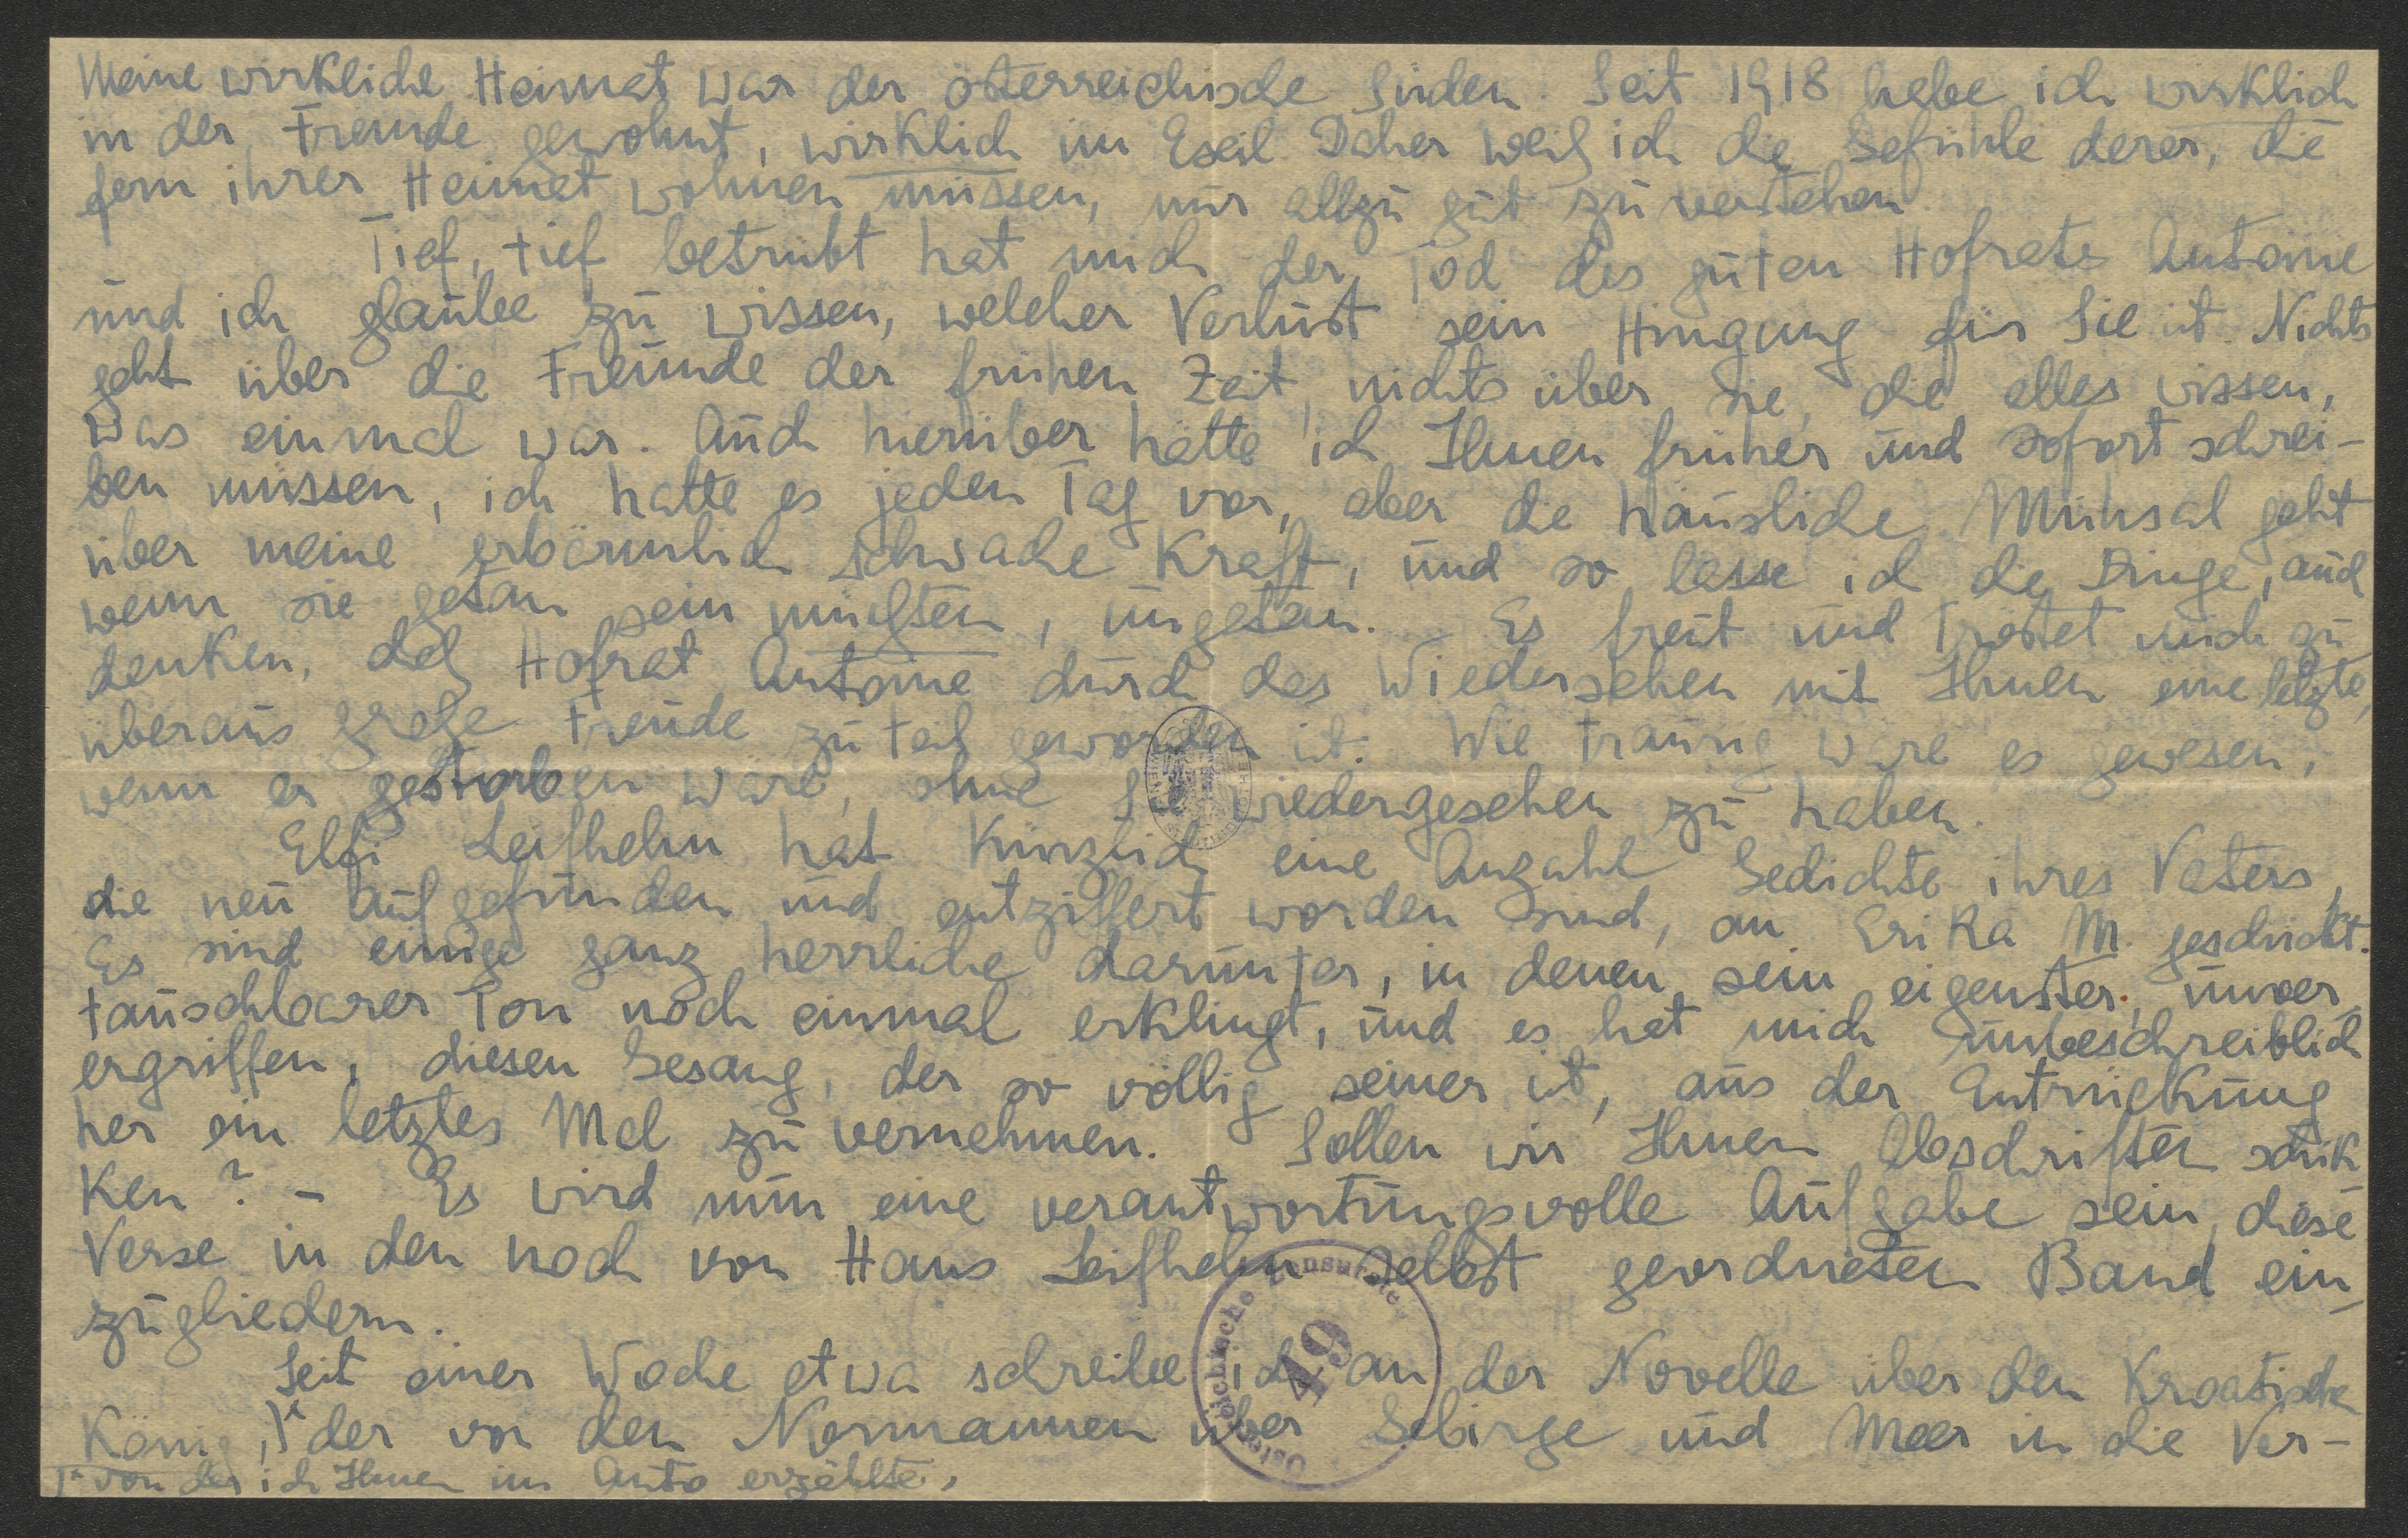 Meine wirkliche Heimat war der österreichische Süden. Seit 1918 habe ich wirklich
in der Fremde gewohnt, wirklich im Exil. Daher weiß ich die Gefühle derer, die
fern ihrer Heimat wohnen müssen, nur allzu gut zu verstehen.
Tief, tief betrübt hat mich der Tod des guten Hofrats Antoine
und ich glaube zu wissen, welcher Verlust sein Hingang für Sie ist. Nichts
geht über die Freunde der frühen Zeit, nichts über sie, die alles wissen,
was einmal war. Auch hierüber hätte ich Ihnen früher und sofort schrei-
ben müssen, ich hatte es jeden Tag vor, aber die häusliche Mühsal geht
über meine erbärmlich schwache Kraft, und so lasse ich die Dinge, auch
wenn sie getan sein müßten, ungetan. – Es freut und tröstet mich zu
denken, daß Hofrat Antoine durch das Wiedersehen mit Ihnen eine letzte,
überaus große Freude zuteil geworden ist. Wie traurig wäre es gewesen,
wenn er gestorben wäre, ohne Sie wiedergesehen zu haben.
Elfi Leifhelm hat kürzlich eine Anzahl Gedichte ihres Vaters,
die neu aufgefunden und entziffert worden sind, an Erika M. geschickt.
Es sind einige ganz herrliche darunter, in denen sein eigenster, unver-
tauschbarer Ton noch einmal erklingt, und es hat mich unbeschreiblich
ergriffen, diesen Gesang, der so völlig seiner ist, aus der Entrückung
her ein letztes Mal zu vernehmen. Sollen wir Ihnen Abschriften schik-
ken? – Es wird nun eine verantwortungsvolle Aufgabe sein, diese
Verse in den noch von Hans Leifhelm selbst geordneten Band ein-
zugliedern.
Seit einer Woche etwa schreibe ich an der Novelle über den Kroatischen
König,)* der vor den Normannen über Gebirge und Meer in die Ver-
)* von der ich Ihnen im Auto erzählte,
Österreichische Zensurstelle
49